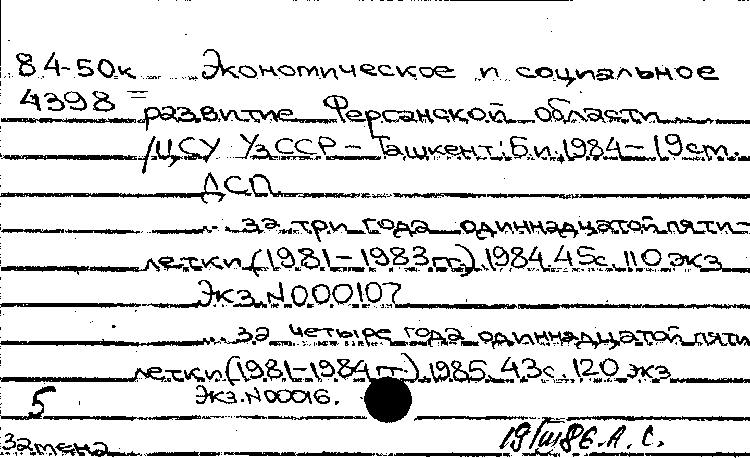 84-50к Экономическое и социальное
4398= развитие Ферганской области
/ЦСУ УзССР – Ташкент: Б.и, 1984 – 19 см.
ДСП.
... за три года одиннадцатой пяти-
летки (1981–1983 гг.). 1984. 45с. 110 экз
Экз. N000107
... за четыре года одиннадцатой пяти
летки (1981–1984 гг.). 1985. 43с. 120 экз
5 Экз. N00016.
19/III 86. А. С.
Замена